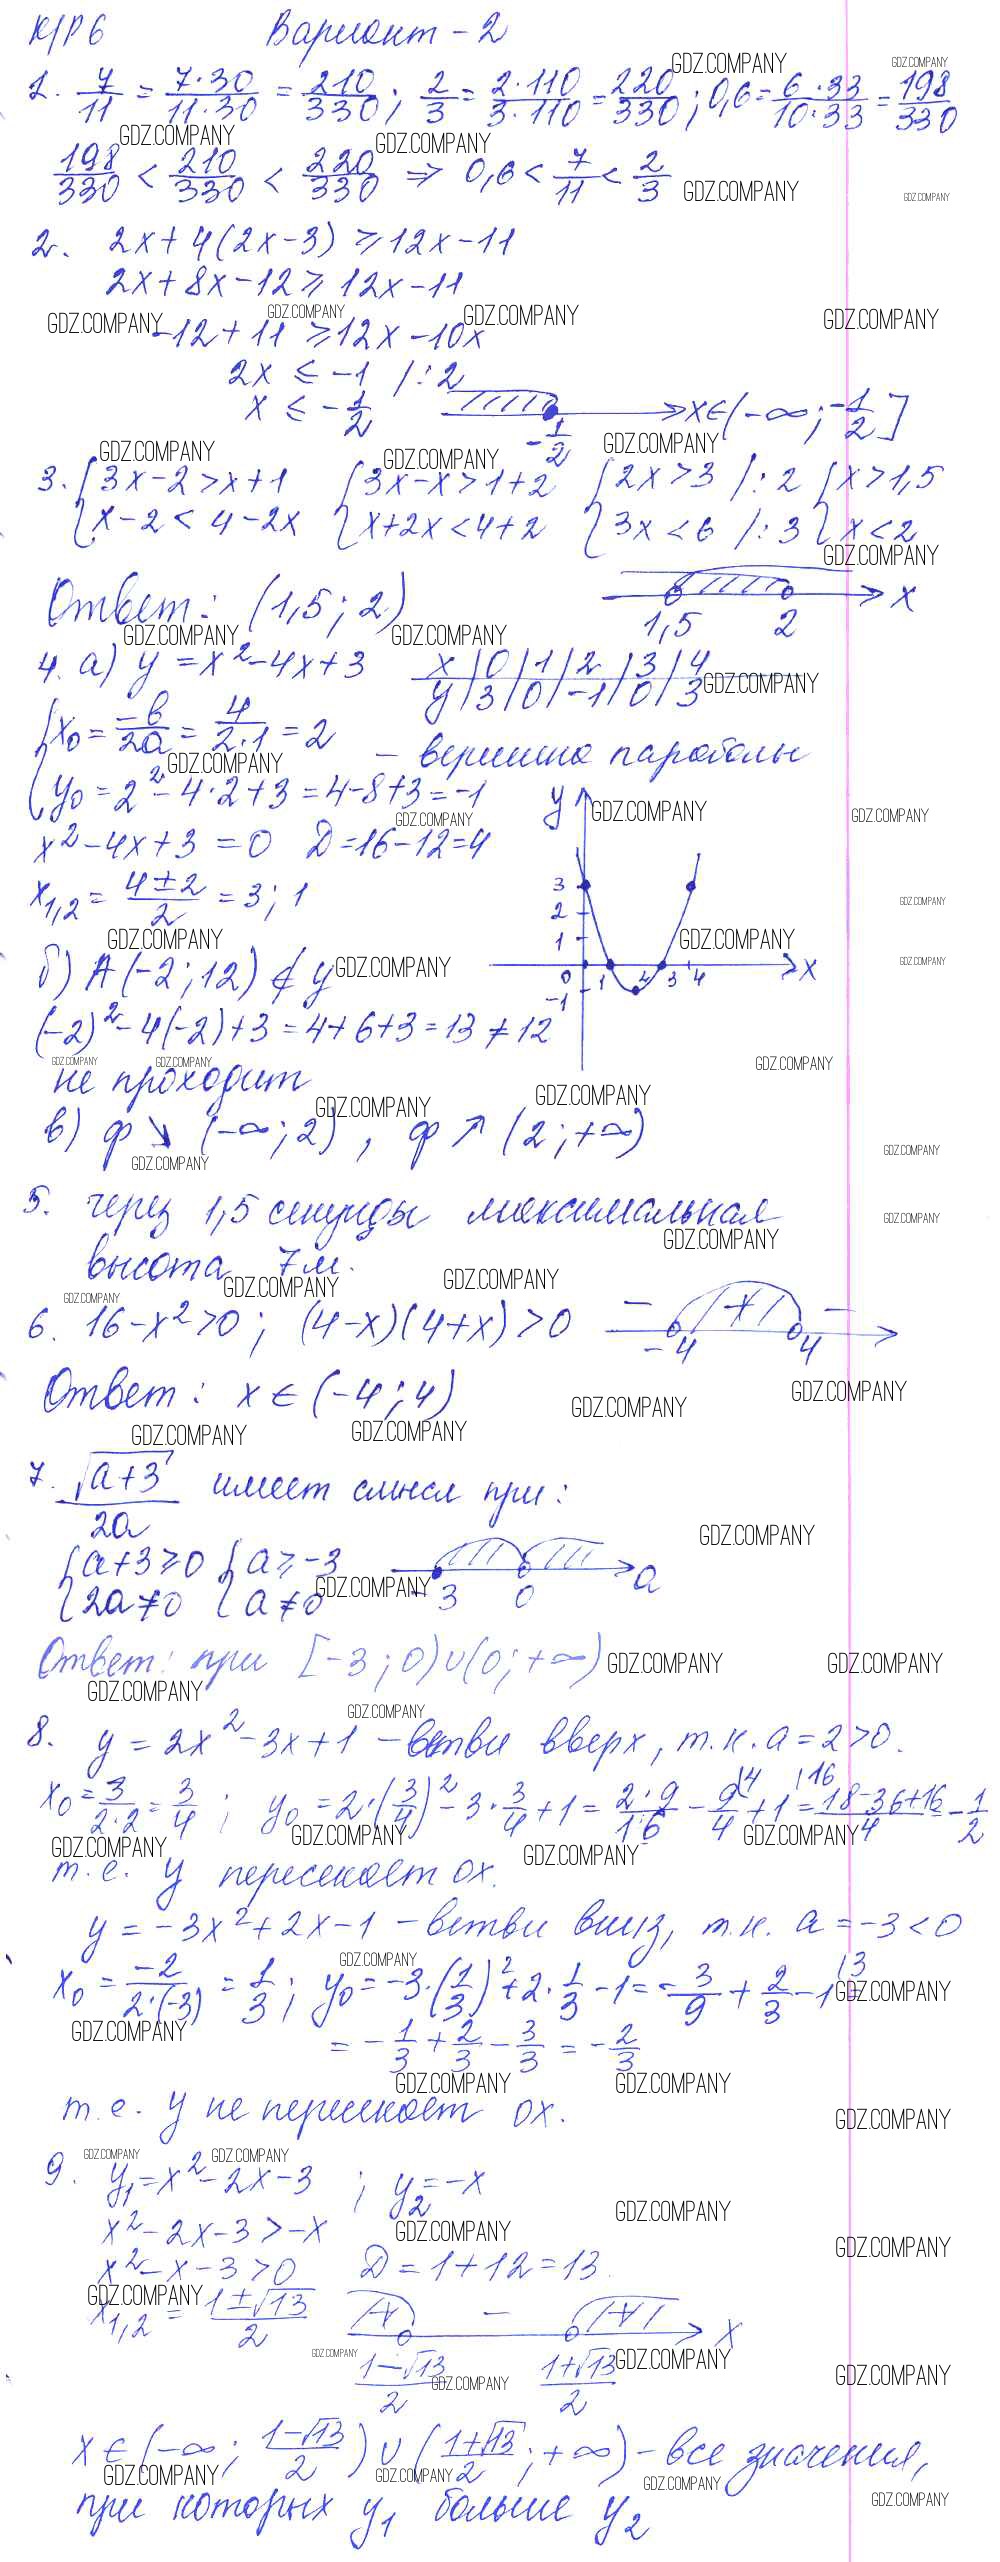 К/Р 6 Вариант - 2
1. 7/11 = 7·30/11·30 = 210/330; 2/3 = 2·110/3·110 = 220/330; 0,6 = 6·33/10·33 = 198/330
198/330 < 210/330 < 220/330 ⇒ 0,6 < 7/11 < 2/3
2. 2x + 4(2x-3) ⩾ 12x - 11
2x + 8x - 12 ⩾ 12x - 11
-12 + 11 ⩾ 12x - 10x
2x ⩽ -1 /:2
x ⩽ -1/2 -1/2 x∈(-∞; -1/2]
3. { 3x - 2 > x + 1 { 3x - x > 1 + 2 { 2x > 3 /:2 { x > 1,5
x - 2 < 4 - 2x x + 2x < 4 + 2 3x < 6 /:3 x < 2
Ответ: (1,5; 2) 1,5 2 x
4. а) y = x² - 4x + 3 x | 0 | 1 | 2 | 3 | 4
y | 3 | 0 | -1 | 0 | 3
{ x₀ = -b/2a = 4/2·1 = 2
- вершина параболы
y₀ = 2² - 4·2 + 3 = 4 - 8 + 3 = -1
x² - 4x + 3 = 0 D = 16 - 12 = 4
x₁,₂ = 4±2/2 = 3; 1
y 3 2 1 0 -1 1 2 3 4 x
б) A(-2; 12) ∉ y
(-2)² - 4(-2) + 3 = 4 + 6 + 3 = 13 ≠ 12
не проходит
в) ф ↘ (-∞; 2), ф ↗ (2; +∞)
5. через 1,5 секунды максимальная
высота 7 м.
6. 16 - x² > 0; (4-x)(4+x) > 0 - + - -4 4
Ответ: x ∈ (-4; 4)
7. √(a+3)/2a имеет смысл при:
{ a + 3 ⩾ 0 { a ⩾ -3
2a ≠ 0 a ≠ 0 -3 0 a
Ответ: при [-3; 0)∪(0; +∞)
8. y = 2x² - 3x + 1 - ветви вверх, т.к. a = 2 > 0.
x₀ = 3/2·2 = 3/4; y₀ = 2·(3/4)² - 3·3/4 + 1 = 2·9/16 - 9/4 |4 + 1 |16 = 18-36+16/4 = -1/2
т.е. y пересекает ox.
y = -3x² + 2x - 1 - ветви вниз, т.к. a = -3 < 0
x₀ = -2/2·(-3) = 1/3; y₀ = -3·(1/3)² + 2·1/3 - 1 = -3/9 + 2/3 - 1 |3 =
= -1/3 + 2/3 - 3/3 = -2/3
т.е. y не пересекает ox.
9. y₁ = x² - 2x - 3; y₂ = -x
x² - 2x - 3 > -x
x² - x - 3 > 0 D = 1 + 12 = 13.
x₁,₂ = 1±√13/2 + - + x
1-√13/2 1+√13/2
x ∈ (-∞; 1-√13/2) ∪ (1+√13/2; +∞) - все значения,
при которых y₁ больше y₂
GDZ.COMPANY